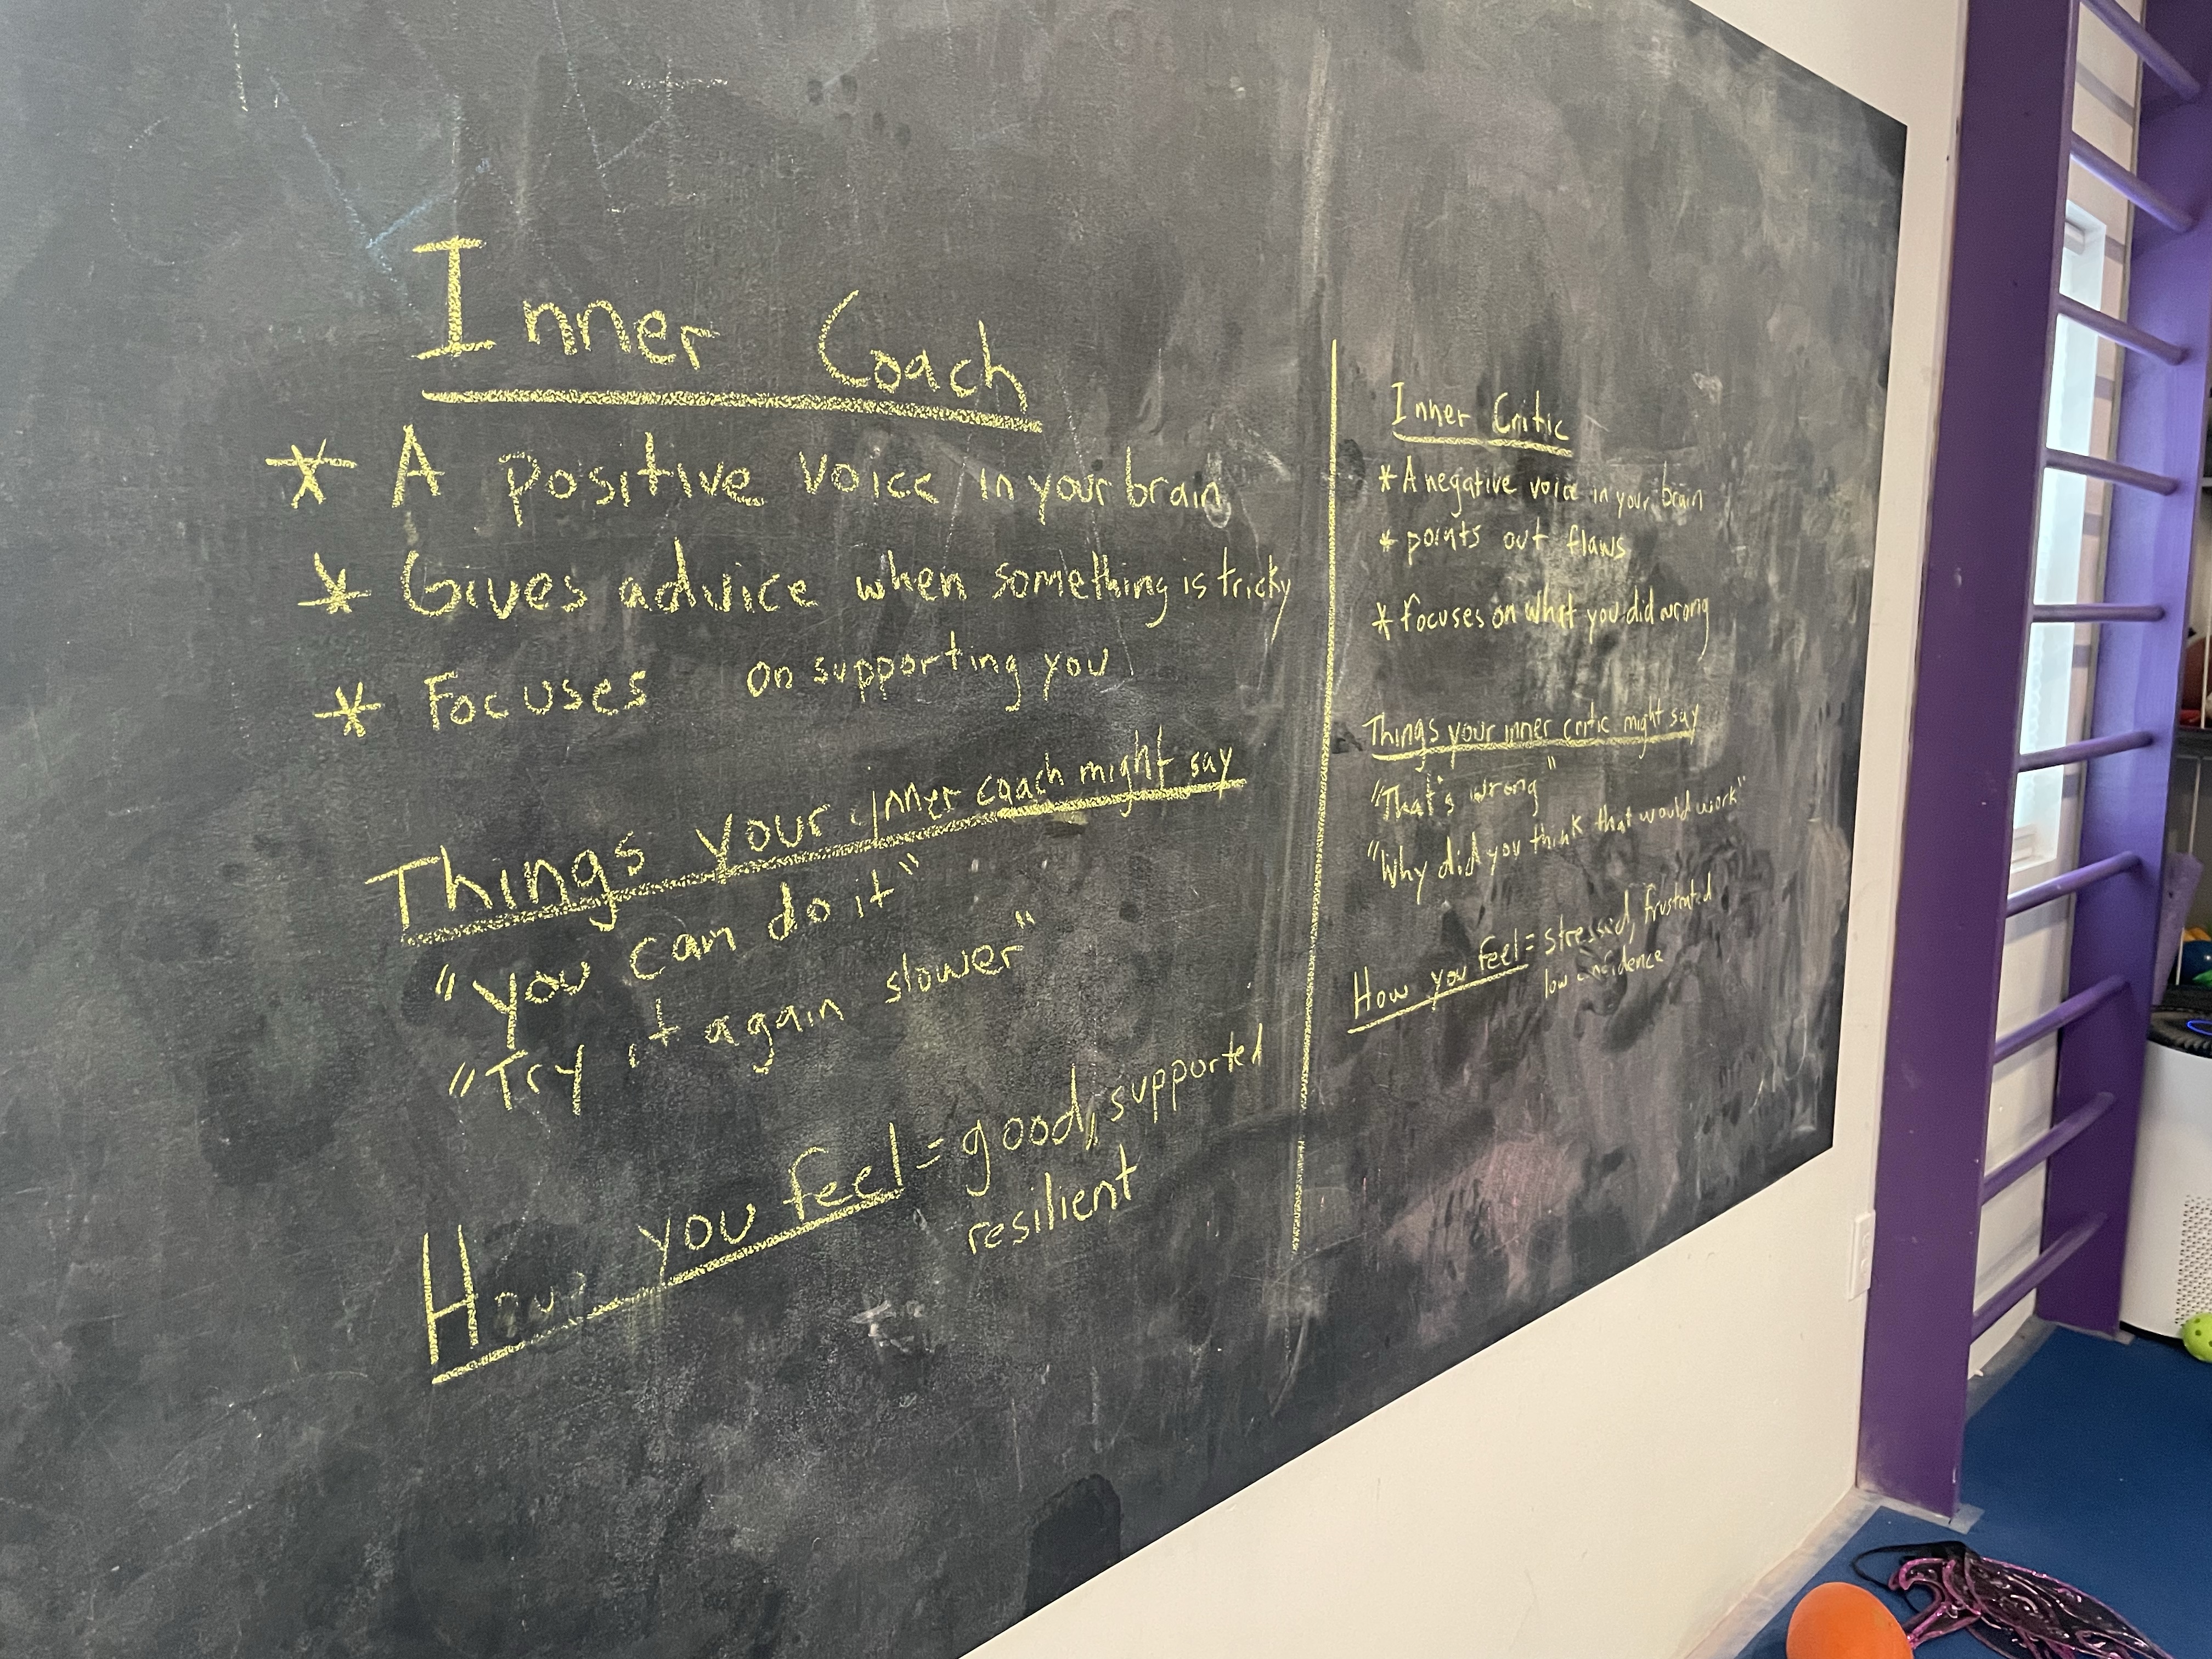 Inner Coach
* A positive voice in your brain
* Gives advice when something is tricky
* Focuses on supporting you
Things your inner coach might say
"You can do it"
"Try it again slower"
How you feel = good, supported
resilient
Inner Critic
* A negative voice in your brain
* points out flaws
* focuses on what you did wrong
Things your inner critic might say
"That's wrong"
"Why did you think that would work"
How you feel = stressed, frustrated
low confidence